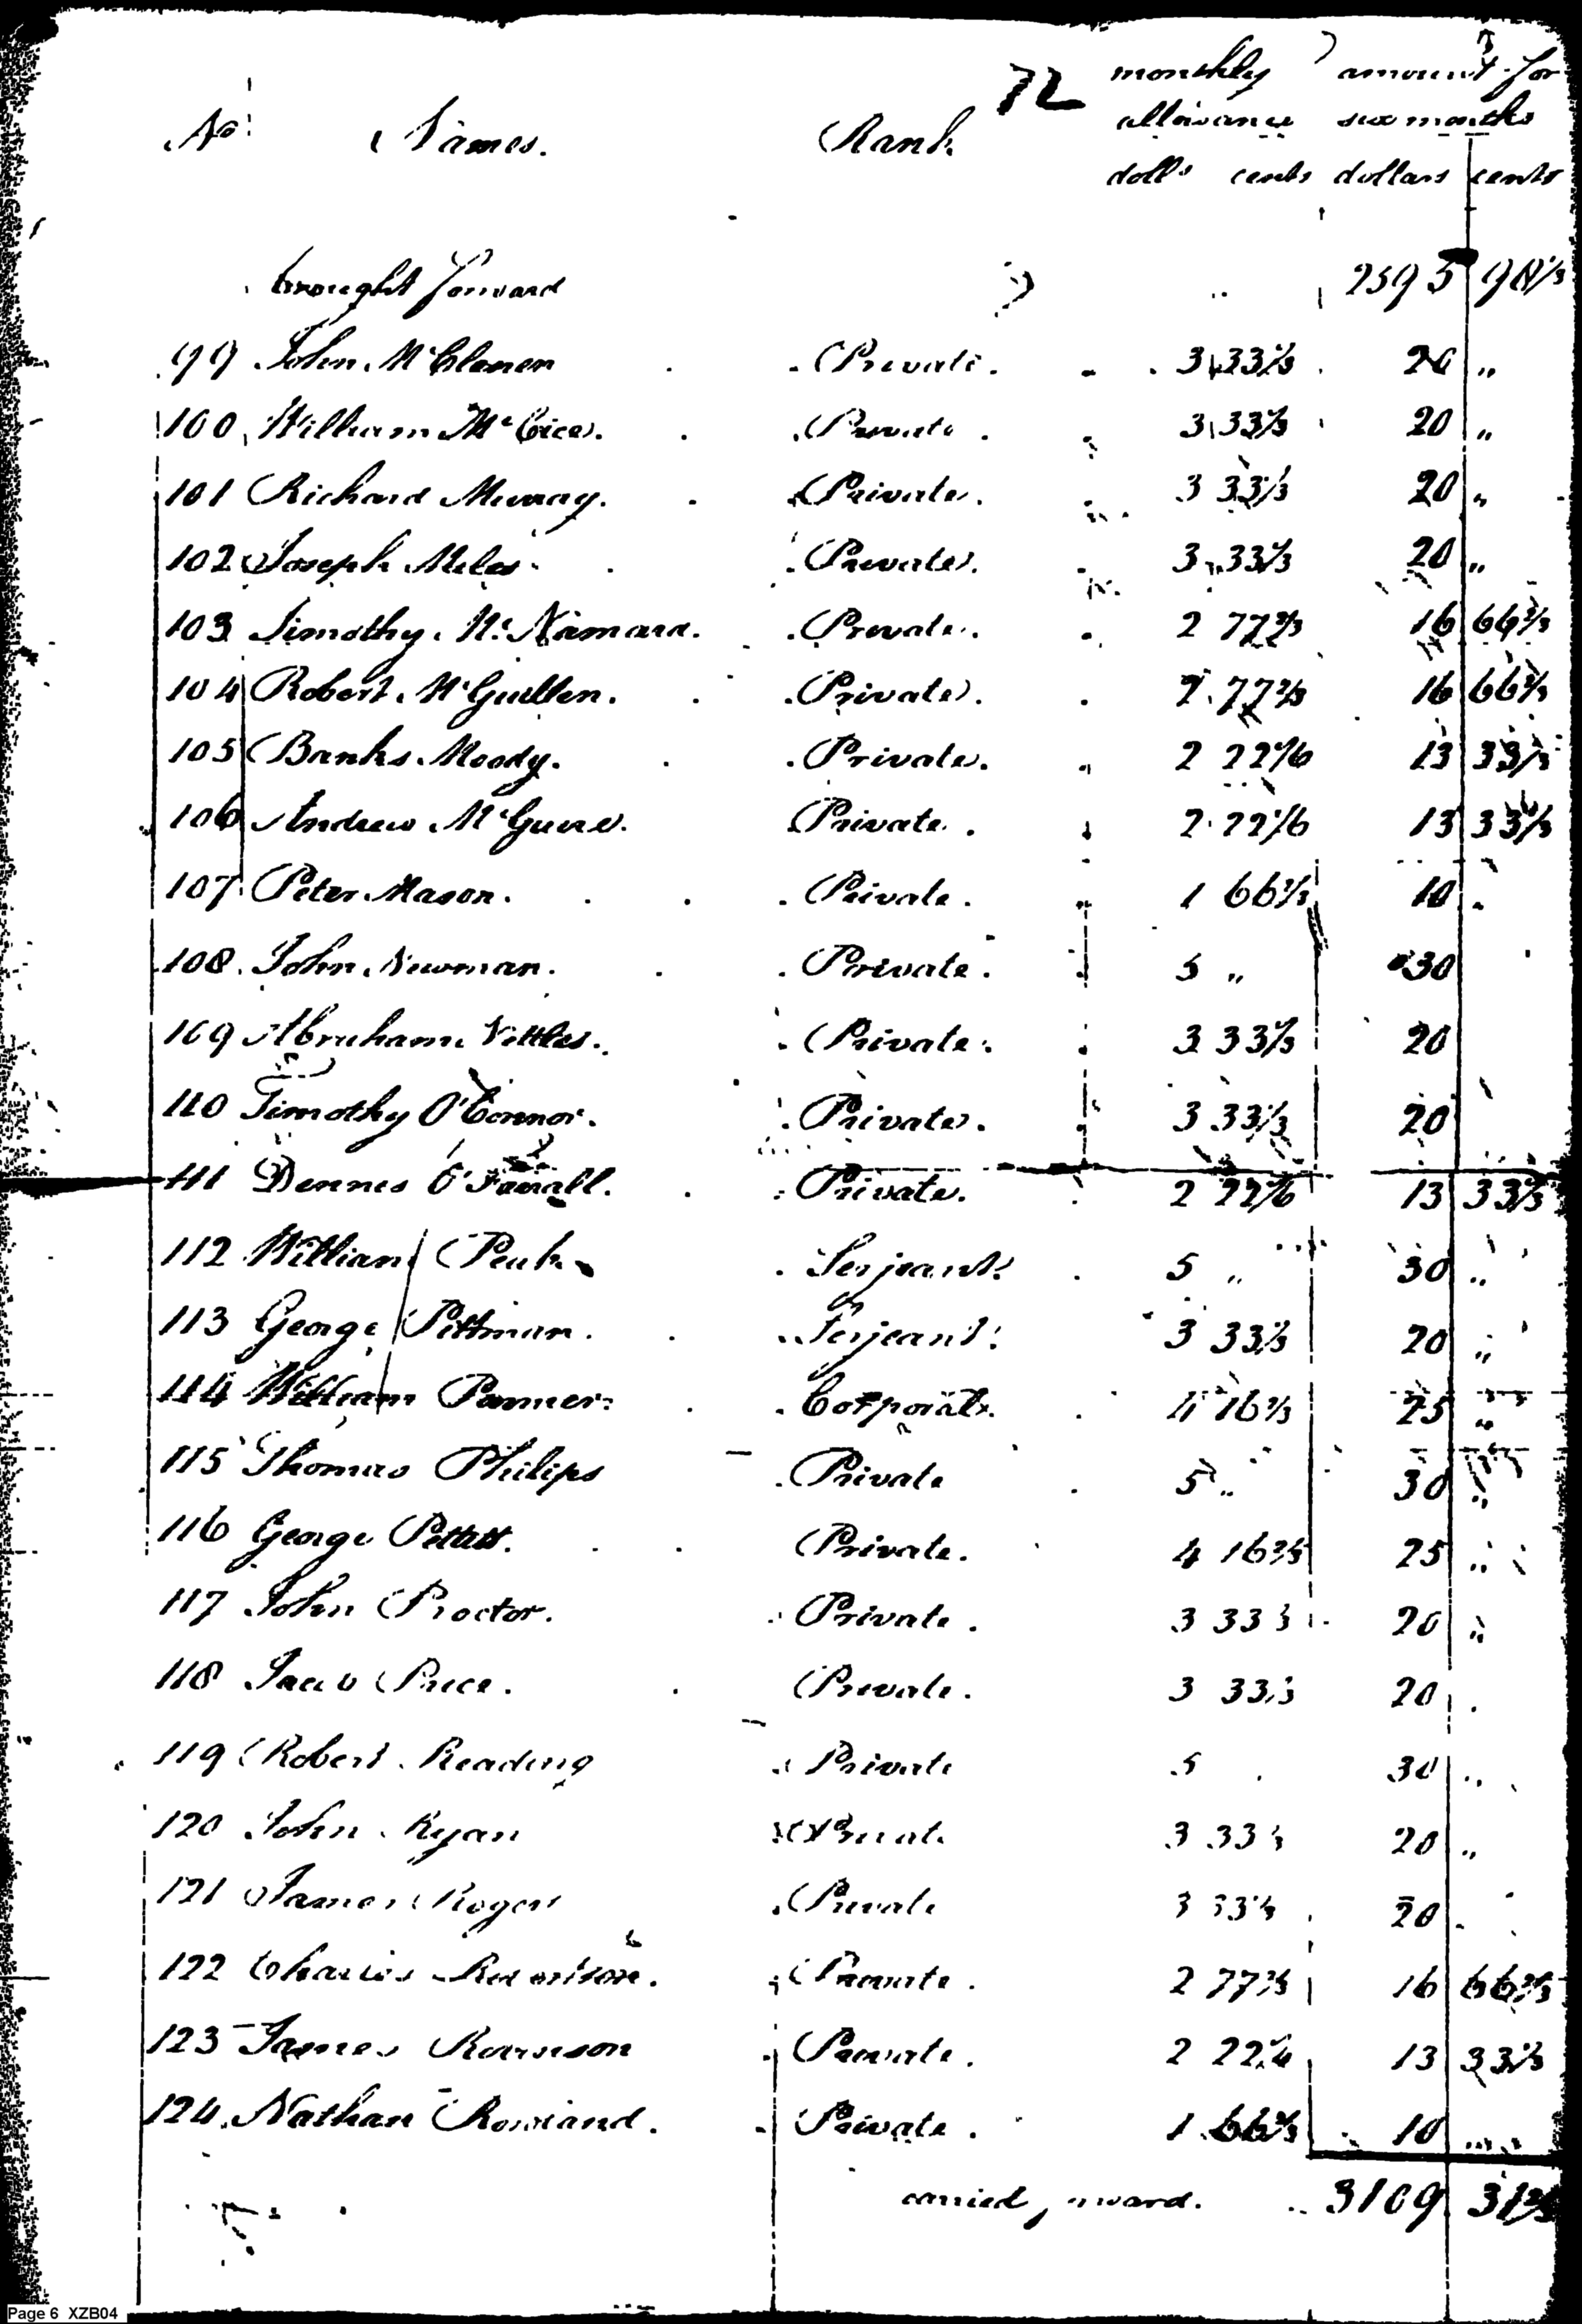 72
monthly amount for
No Names. Rank allowance six months
dolls cents dollars cents
brought forward 2595 98 1/3
99 John McClenen Private. 3 33 1/3 20 "
100 William McCice. Private. 3 33 1/3 20 "
101 Richard Murray. Private. 3 33 1/3 20 "
102 Joseph Miles. Private. 3 33 1/3 20 "
103 Timothy McNamara. Private. 2 77 2/3 16 66 2/3
104 Robert McGuillen. Private. 2 77 2/3 16 66 2/3
105 Banks Moody. Private. 2 22 1/6 13 33 1/3
106 Andrew McGuire. Private. 2 22 1/6 13 33 1/3
107 Peter Mason. Private. 1 66 2/3 10 "
108 John Newman. Private. 5 " 30
109 Abraham Nettles. Private. 3 33 1/3 20
110 Timothy O'Connor. Private. 3 33 1/3 20
111 Dennes O'Farrall. Private. 2 22 1/6 13 33 1/3
112 William Peak Serjeant. 5 " 30 "
113 George Pittman. Serjeant. 3 33 1/3 20 "
114 William Parmer. Corporal. 4 16 2/3 25 "
115 Thomas Philips Private 5 " 30 "
116 George Pettett. Private. 4 16 2/3 25 "
117 John Proctor. Private. 3 33 1/3 20 "
118 Jacob Price. Private. 3 33 1/3 20 "
119 Robert Reading Private 5 30 "
120 John Ryan Private 3 33 1/3 20 "
121 James Rogers Private 3 33 1/3 20
122 Charles Robertson. Private. 2 77 2/3 16 66 2/3
123 James Robinson Private. 2 22 1/6 13 33 1/3
124 Nathan Rowland. Private. 1 66 2/3 10 "
carried forward. 3109 31 2/3
Page 6 XZB04